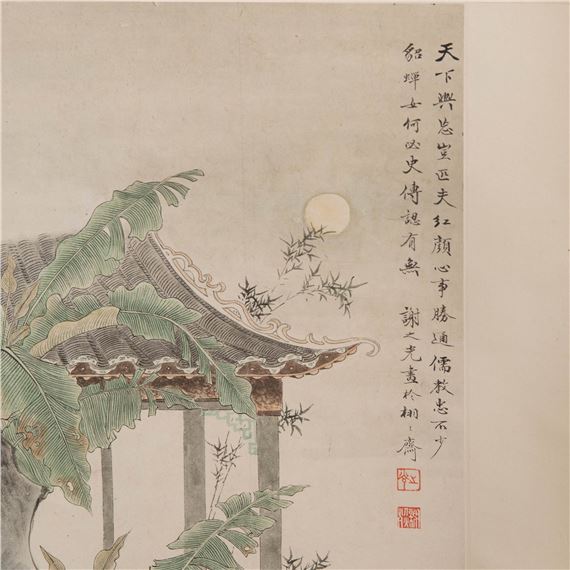 天下興亡豈匹夫紅顏心事勝通儒教忠不少
貂蟬女何必史傳認有無　謝之光畫於栩栩齋